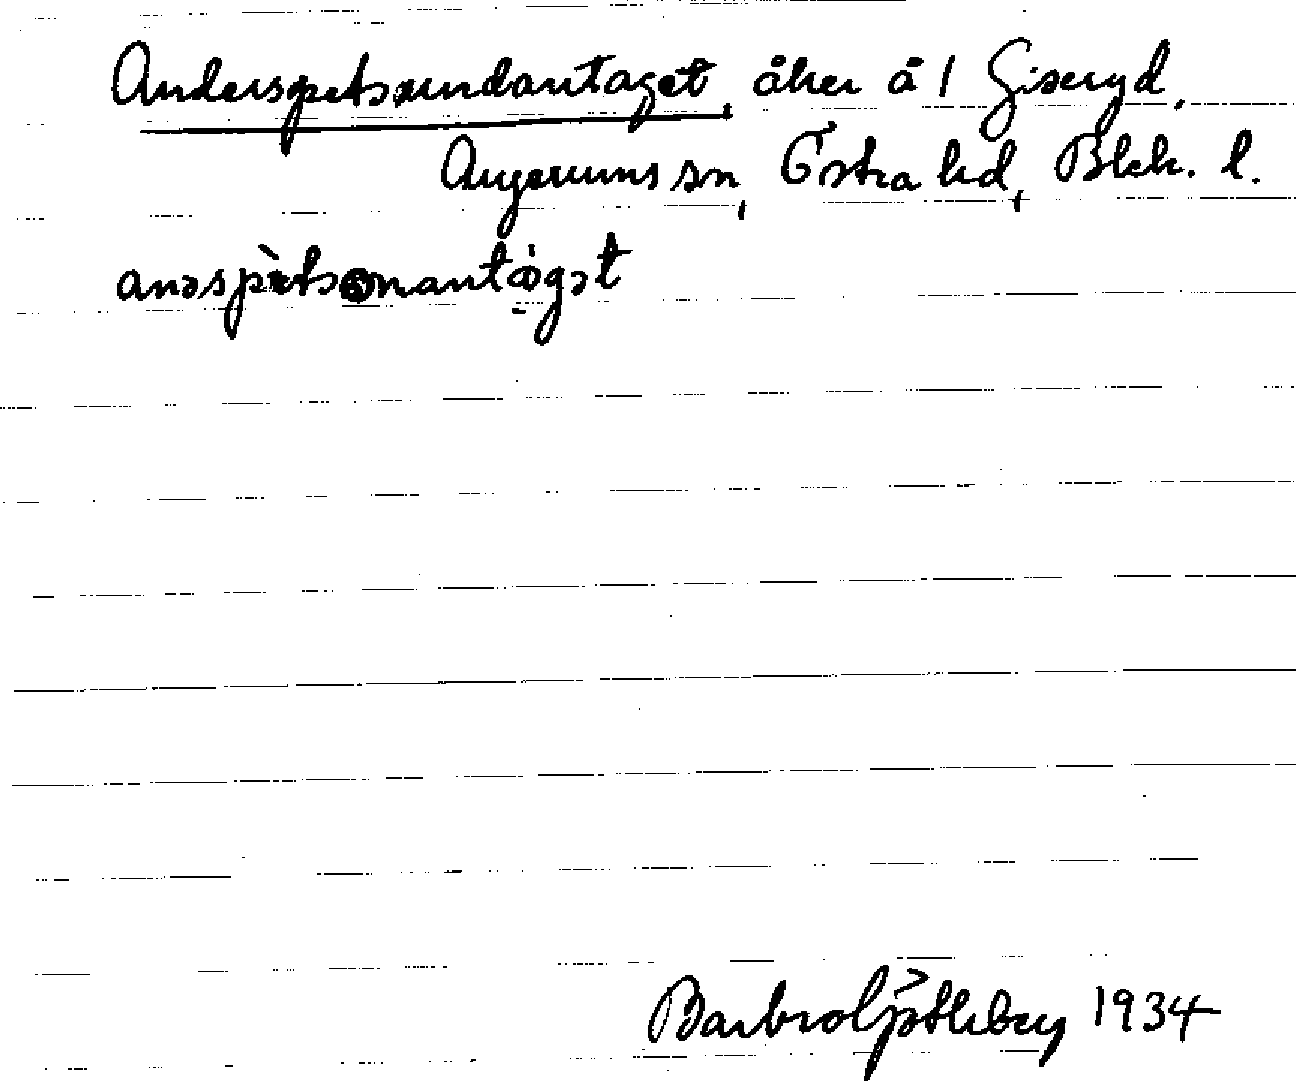 Anderspetsundantaget, åker å 1 Giseryd,
Augerums sn, Östra hd, Blek. l.
anəspètsɷnantȧgət
Barbro 1934